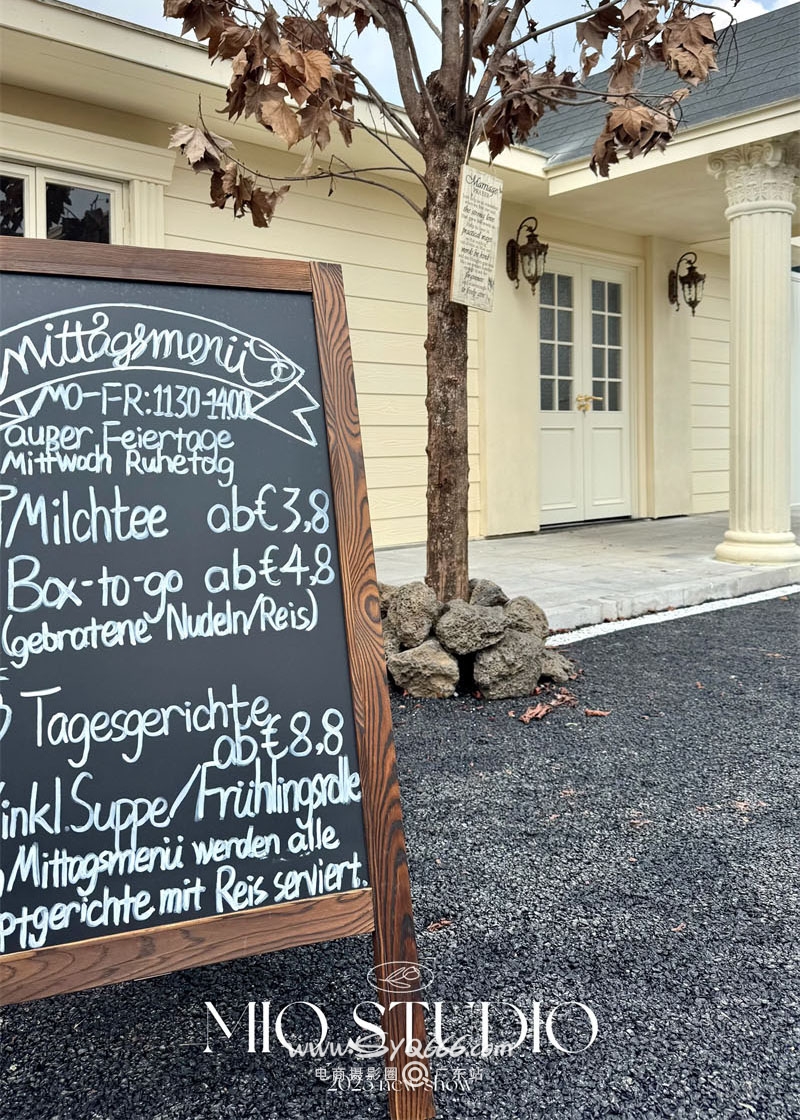 Mittagsmenü
MO-FR:1130-1400
außer Feiertage
Mittwoch Ruhetag
Milchtee ab€3,8
Box-to-go ab€4,8
(gebratene Nudeln/Reis)
Tagesgerichte
ab€8,8
inkl.Suppe/Frühlingsrolle
Mittagsmenü werden alle
ptgerichte mit Reis serviert.
Marriage
MIO STUDIO
www.SYQ666.com
电商摄影圈@广东站
2023 new show